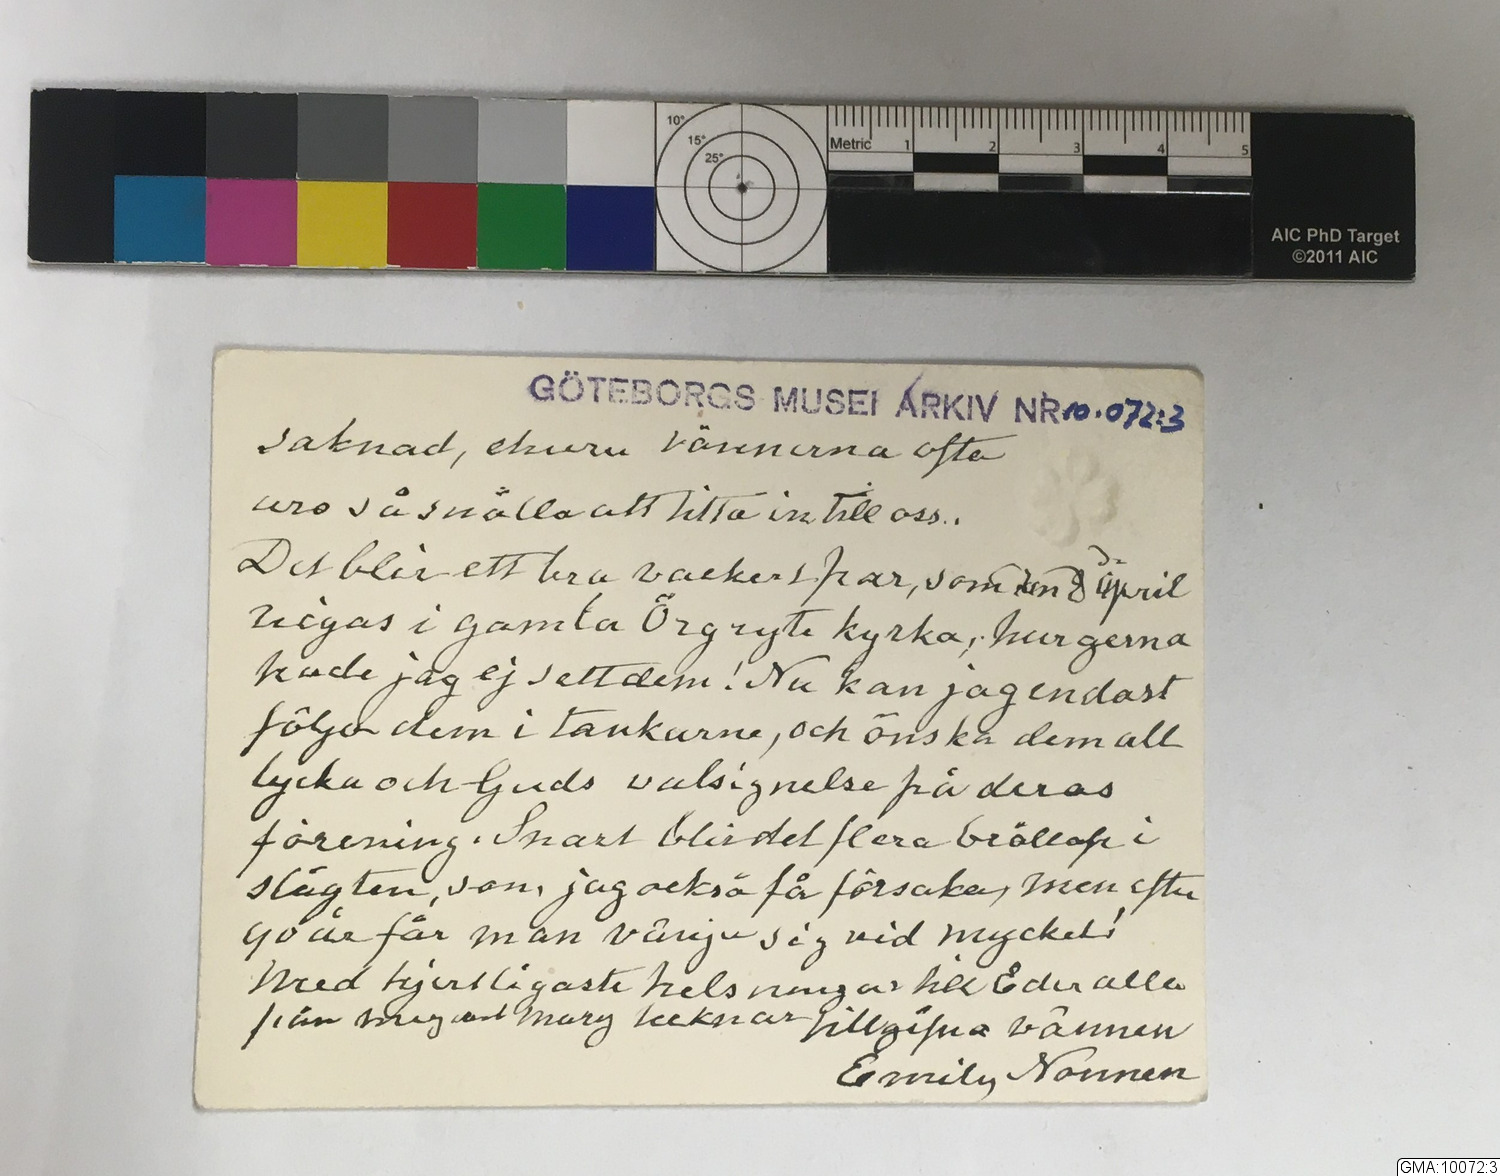 10°
15°
25°
Metric 1 2 3 4 5
AIC PhD Target
©2011 AIC
GÖTEBORGS MUSEI ARKIV NR 10.072:3
saknad, ehuru vännerna ofta
äro så snälla att titta in till oss.
Det blir ett bra vackert par, som den 8 April
viegas i gamla Örgryte kyrka; hur gerna
hade jag ej sett dem! Nu kan jag endast
följa dem i tankarne, och önska dem allt
lycka och Guds välsignelse på deras
förening. Snart blir det flera bröllop i
slägten, som jag också få försaka, men efter
90 år får man vänja sig vid mycket!
Med hjertligaste helsningar till Eder alla
från mig och Mary tecknar tillgifna vännen
Emily Nonnen
GMA:10072:3